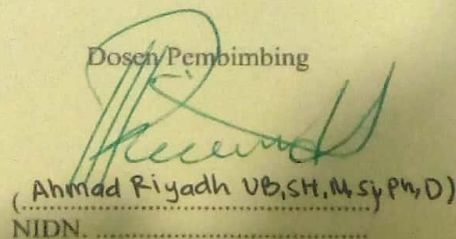 Dosen Pembimbing
(Ahmad Riyadh UB, SH, M, Si, Ph, D)
NIDN. ................................................